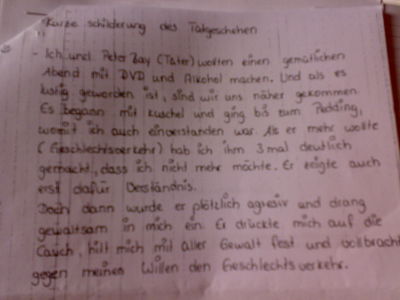 Kurze schilderung des Tatgeschehen
- Ich und Peter Bay (Täter) wollten einen gemütlichen
Abend mit DVD und Alkohol machen. Und als es
lustig geworden ist, sind wir uns näher gekommen.
Es begann mit kuschel und ging bis zum Pedding,
womit ich auch einverstanden war. Als er mehr wollte
(Geschlechtsverkehr) hab ich ihm 3 mal deutlich
gemacht, dass ich nicht mehr möchte. Er zeigte auch
erst dafür Verständnis.
Doch dann wurde er plötzlich agresiv und drang
gewaltsam in mich ein. Er drückte mich auf die
Couch, hilt mich mit aller Gewalt fest und vollbracht
gegen meinen Willen den Geschlechtsverkehr.